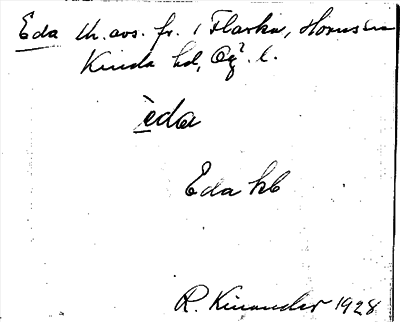 Eda th. avs. fr. 1 Flarka, Hornsån
Kinda hd, Ög. l.
èda
Eda hb
R. Kinander 1928